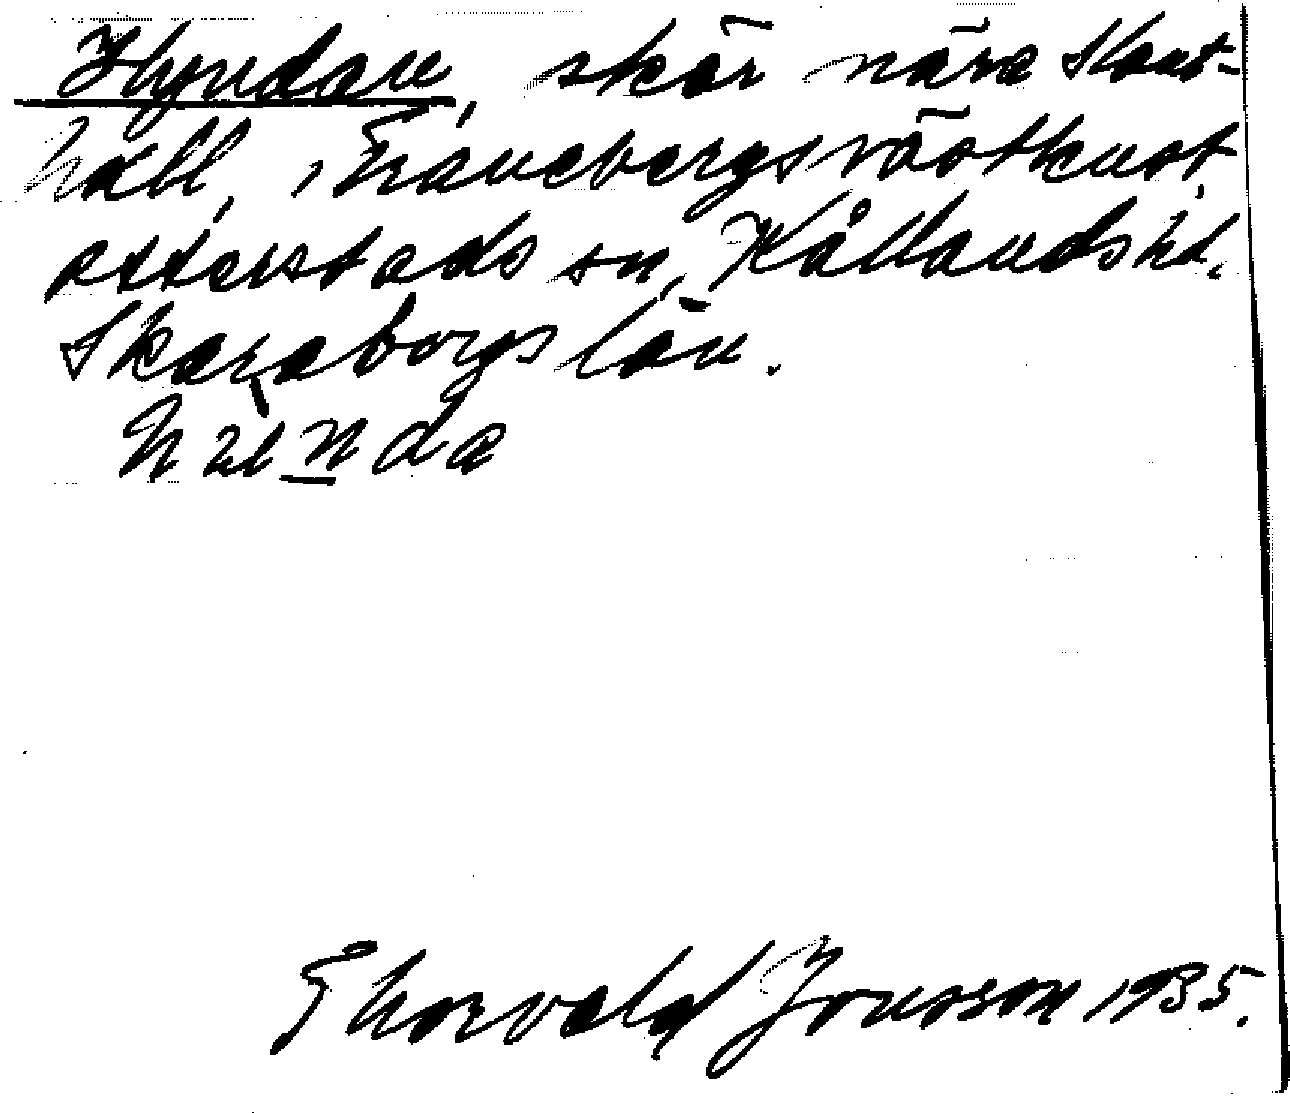 Hyndan, skär nära
häll, i Tranebergs västkust,
Otterstads sn, Kållands hd.
Skaraborgs län.
Thorvald Jonsson 1935.